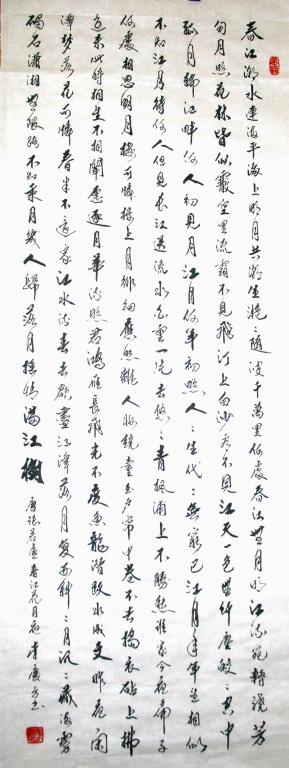 春江潮水連海平海上明月共潮生灩々隨波千萬里何處春江無月明江流宛轉繞芳
甸月照花林皆似霰空里流霜不覺飛汀上白沙看不見江天一色無纖塵皎々空中
孤月輪江畔何人初見月江月何年初照人々生代々無窮已江月年年望相似
不知江月待何人但見長江送流水白雲一片去悠々青楓浦上不勝愁誰家今夜扁舟子
何處相思明月樓可憐樓上月徘徊應照離人妝鏡臺玉戶簾中卷不去搗衣砧上拂
還來此時相望不相聞願逐月華流照君鴻雁長飛光不度魚龍潛躍水成文昨夜閑
潭夢落花可憐春半不還家江水流春去欲盡江潭落月復西斜々月沉々藏海霧
碣石瀟湘無限路不知乘月幾人歸落月搖情滿江樹 唐張若虛春江花月夜